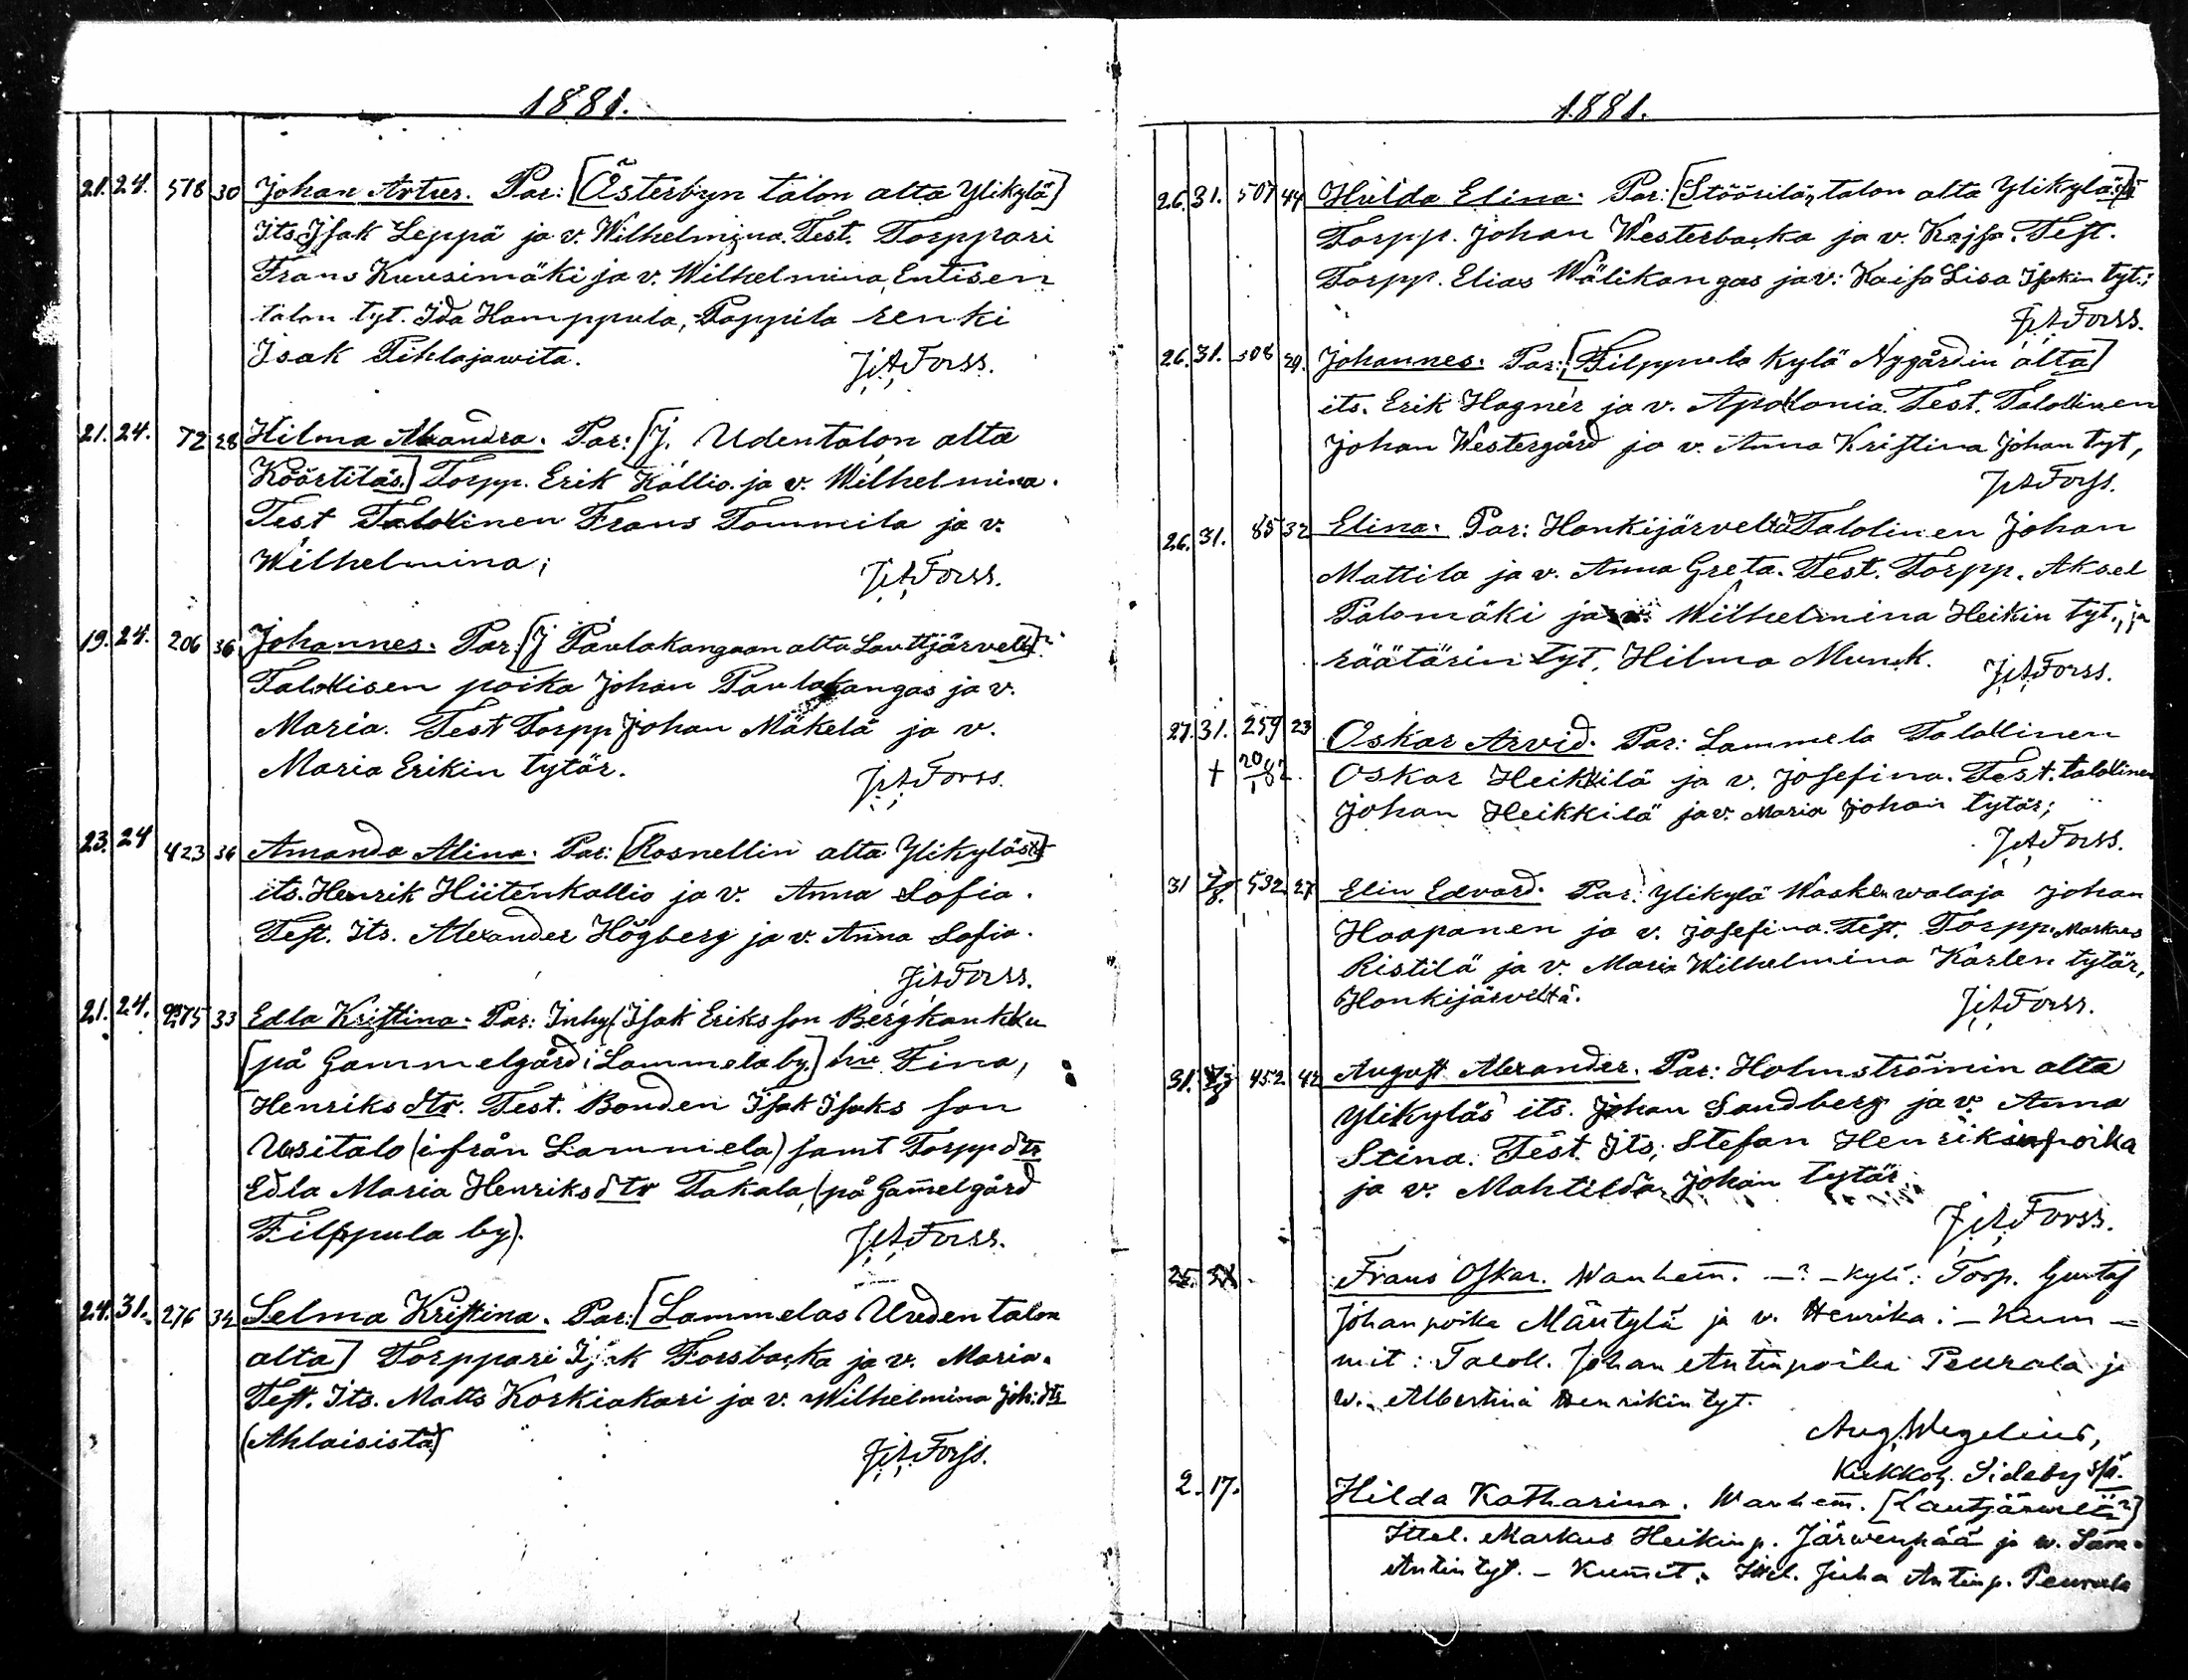 1881.
21. 24. 518 30 Johan Artur. Par: [Österbyn talon alta Ylikylä]
Its. Isak Leppä ja v. Wilhelmina. Test. Torppari
Frans Kuusimäki ja v. Wilhelmina, Entisen
talon tyt. Ida Hamppula, Pappila renki
Isak Pihlajawita. J.A. Forss.
21. 24. 72 28 Hilma Alexandra. Par: [J. Uden talon alta
Köörtiläs] Torpp. Erik Kallio ja v. Wilhelmina.
Test Talollinen Frans Tommila ja v.
Wilhelmina; J.A. Forss.
19. 24. 206 36 Johannes. Par: [J Paulakangaan alta Lauttjärvelt]
Talollisen poika Johan Paulakangas ja v.
Maria. Test Torpp Johan Mäkelä ja v.
Maria Erikin tytär. J.A. Forss.
23. 24 423 36 Amanda Alina. Par: [Rosnellin alta Ylikyläst]
its. Henrik Hiitenkallio ja v. Anna Sofia.
Test. Its. Alexander Högberg ja v. Anna Sofia.
J.A. Forss.
21. 24. 275 33 Edla Kristina. Par: Inhy. Isak Eriksson Bergkankku
[på Gammelgård i Lammela by] hu Fina,
Henriks dtr. Test. Bonden Isak Isaks son
Uusitalo (ifrån Lammela) samt Torpp dtr
Edla Maria Henriks dtr Takala, (på Gam̅elgård
Filppula by). J.A. Forss.
24. 31. 276 34 Selma Kristina. Par: [Lammelas Uuden talon
alta] Torppari Isak Forsbacka ja v. Maria.
Test. Its. Matts Korkiakari ja v. Wilhelmina Joh: dtr
(Ahlaisistä) J.A. Forss.
1881.
26. 31. 507 44 Hulda Elina. Par: [Stöörilä, talon alta Ylikyläst]
Torpp. Johan Westerbacka ja v. Kajsa. Test.
Torpp. Elias Wälikangas ja v: Kaisa Lisa Isakin tyt.;
J.A. Forss.
26. 31. 508 29. Johannes. Par: [Filppula kylä Nygårdin alta]
its. Erik Hagnér ja v. Apollonia. Test. Talollinen
Johan Westergård ja v. Anna Kristina Johan tyt,
J.A. Forss.
26. 31. 85 32 Elina. Par: Honkijärveltä Talolinen Johan
Mattila ja v. Anna Greta. Test. Torpp. Aksel
Palomäki ja v. Wilhelmina Heikin tyt., ja
räätärin tyt. Hilma Munck. J.A. Forss.
27. 31. 259 23 Oskar Arvid. Par: Lammela Talollinen
† Oskar Heikkilä ja v. Josefina. Test. talollinen
Johan Heikkilä ja v. Maria Johan tytär;
J.A. Forss.
31 532 27 Elin Edvard. Par: Ylikylä Wasken walaja Johan
Haapanen ja v. Josefina. Test. Torpp. Markus
Ristilä ja v. Maria Wilhelmina Karlen tytär,
Honkijärveltä. J.A. Forss.
31. 452 42 August Alexander. Par: Holmströmin alta
Ylikyläs its. Johan Sandberg ja v. Anna
Stina. Test. Its; Stefan Henrikinpoika
ja v. Mahtilda Johan tytär
J.A. Forss.
Frans Oskar. Wanhem̅. —?—kylä: Torp. Gustaf
Johanpoika Mäntylä ja v. Henrika: — Kum—
mit: Taloll. Johan Antinpoika Peurala ja
w. Albertina Henrikin tyt.
Aug. Wegelius,
Kirkkoh. Sideby:ssä.
2. 17. Hilda Katharina. Wanhem̅. [Lautjärweltä]
Ittel. Markus Heikinp. Järwenpää ja w. Sara
Antin tyt. — Kum̅it: Itel. Juha Antinp. Peurala